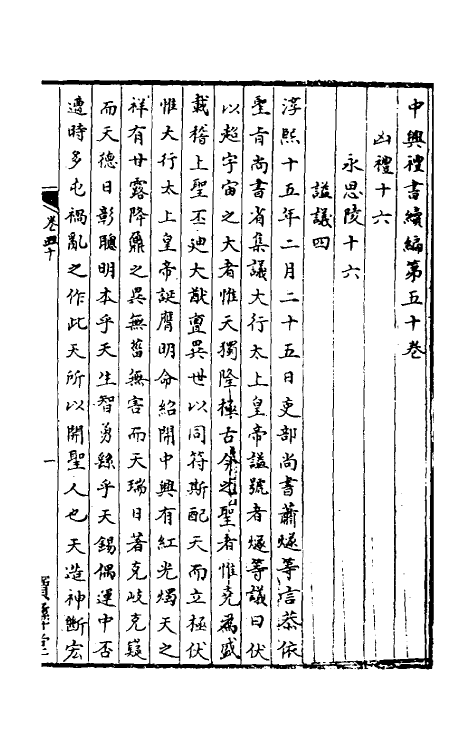 中興禮書續編第五十卷
凶禮十六
永思陵十六
諡議四
淳熙十五年二月二十五日吏部尚書蕭燧等言恭依
聖旨尚書省集議大行太上皇帝諡號者燧等議曰伏
以超宇宙之大者惟天獨隆極古今之聖者惟堯為盛
載稽上聖丕迪大猷亶異世以同符斯配天而立極伏
惟大行太上皇帝誕膺明命紹開中興有紅光燭天之
祥有甘露降鼐之異無菑無害而天瑞日著克岐克嶷
而天德日彰聰明本乎天生智勇繇乎天錫偶運中否
遭時多屯禍亂之作此天所以開聖人也天造神斷宏
卷五十
一